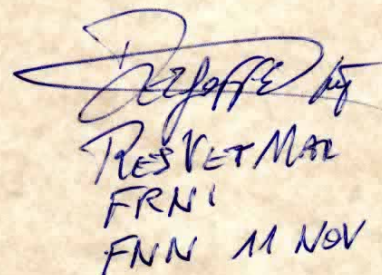 RES VET MAR
FRNI
FNN 11 NOV